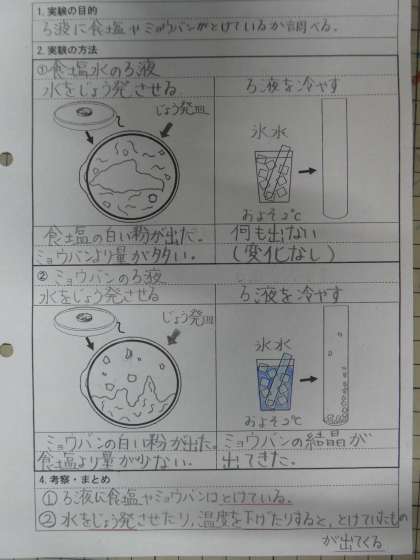 1. 実験の目的
ろ液に食塩やミョウバンがとけているか調べる。
2. 実験の方法
①食塩水のろ液
水をじょう発させる
ろ液を冷やす
じょう発皿
氷水
およそ2℃
食塩の白い粉が出た。
ミョウバンより量が多い。
何も出ない
(変化なし)
② ミョウバンのろ液
水をじょう発させる
ろ液を冷やす
じょう発皿
氷水
およそ2℃
ミョウバンの白い粉が出た。
食塩より量が少ない。
ミョウバンの結晶が
出てきた。
4. 考察・まとめ
① ろ液に食塩やミョウバンはとけている。
② 水をじょう発させたり,温度を下げたりすると,とけていたもの
が出てくる